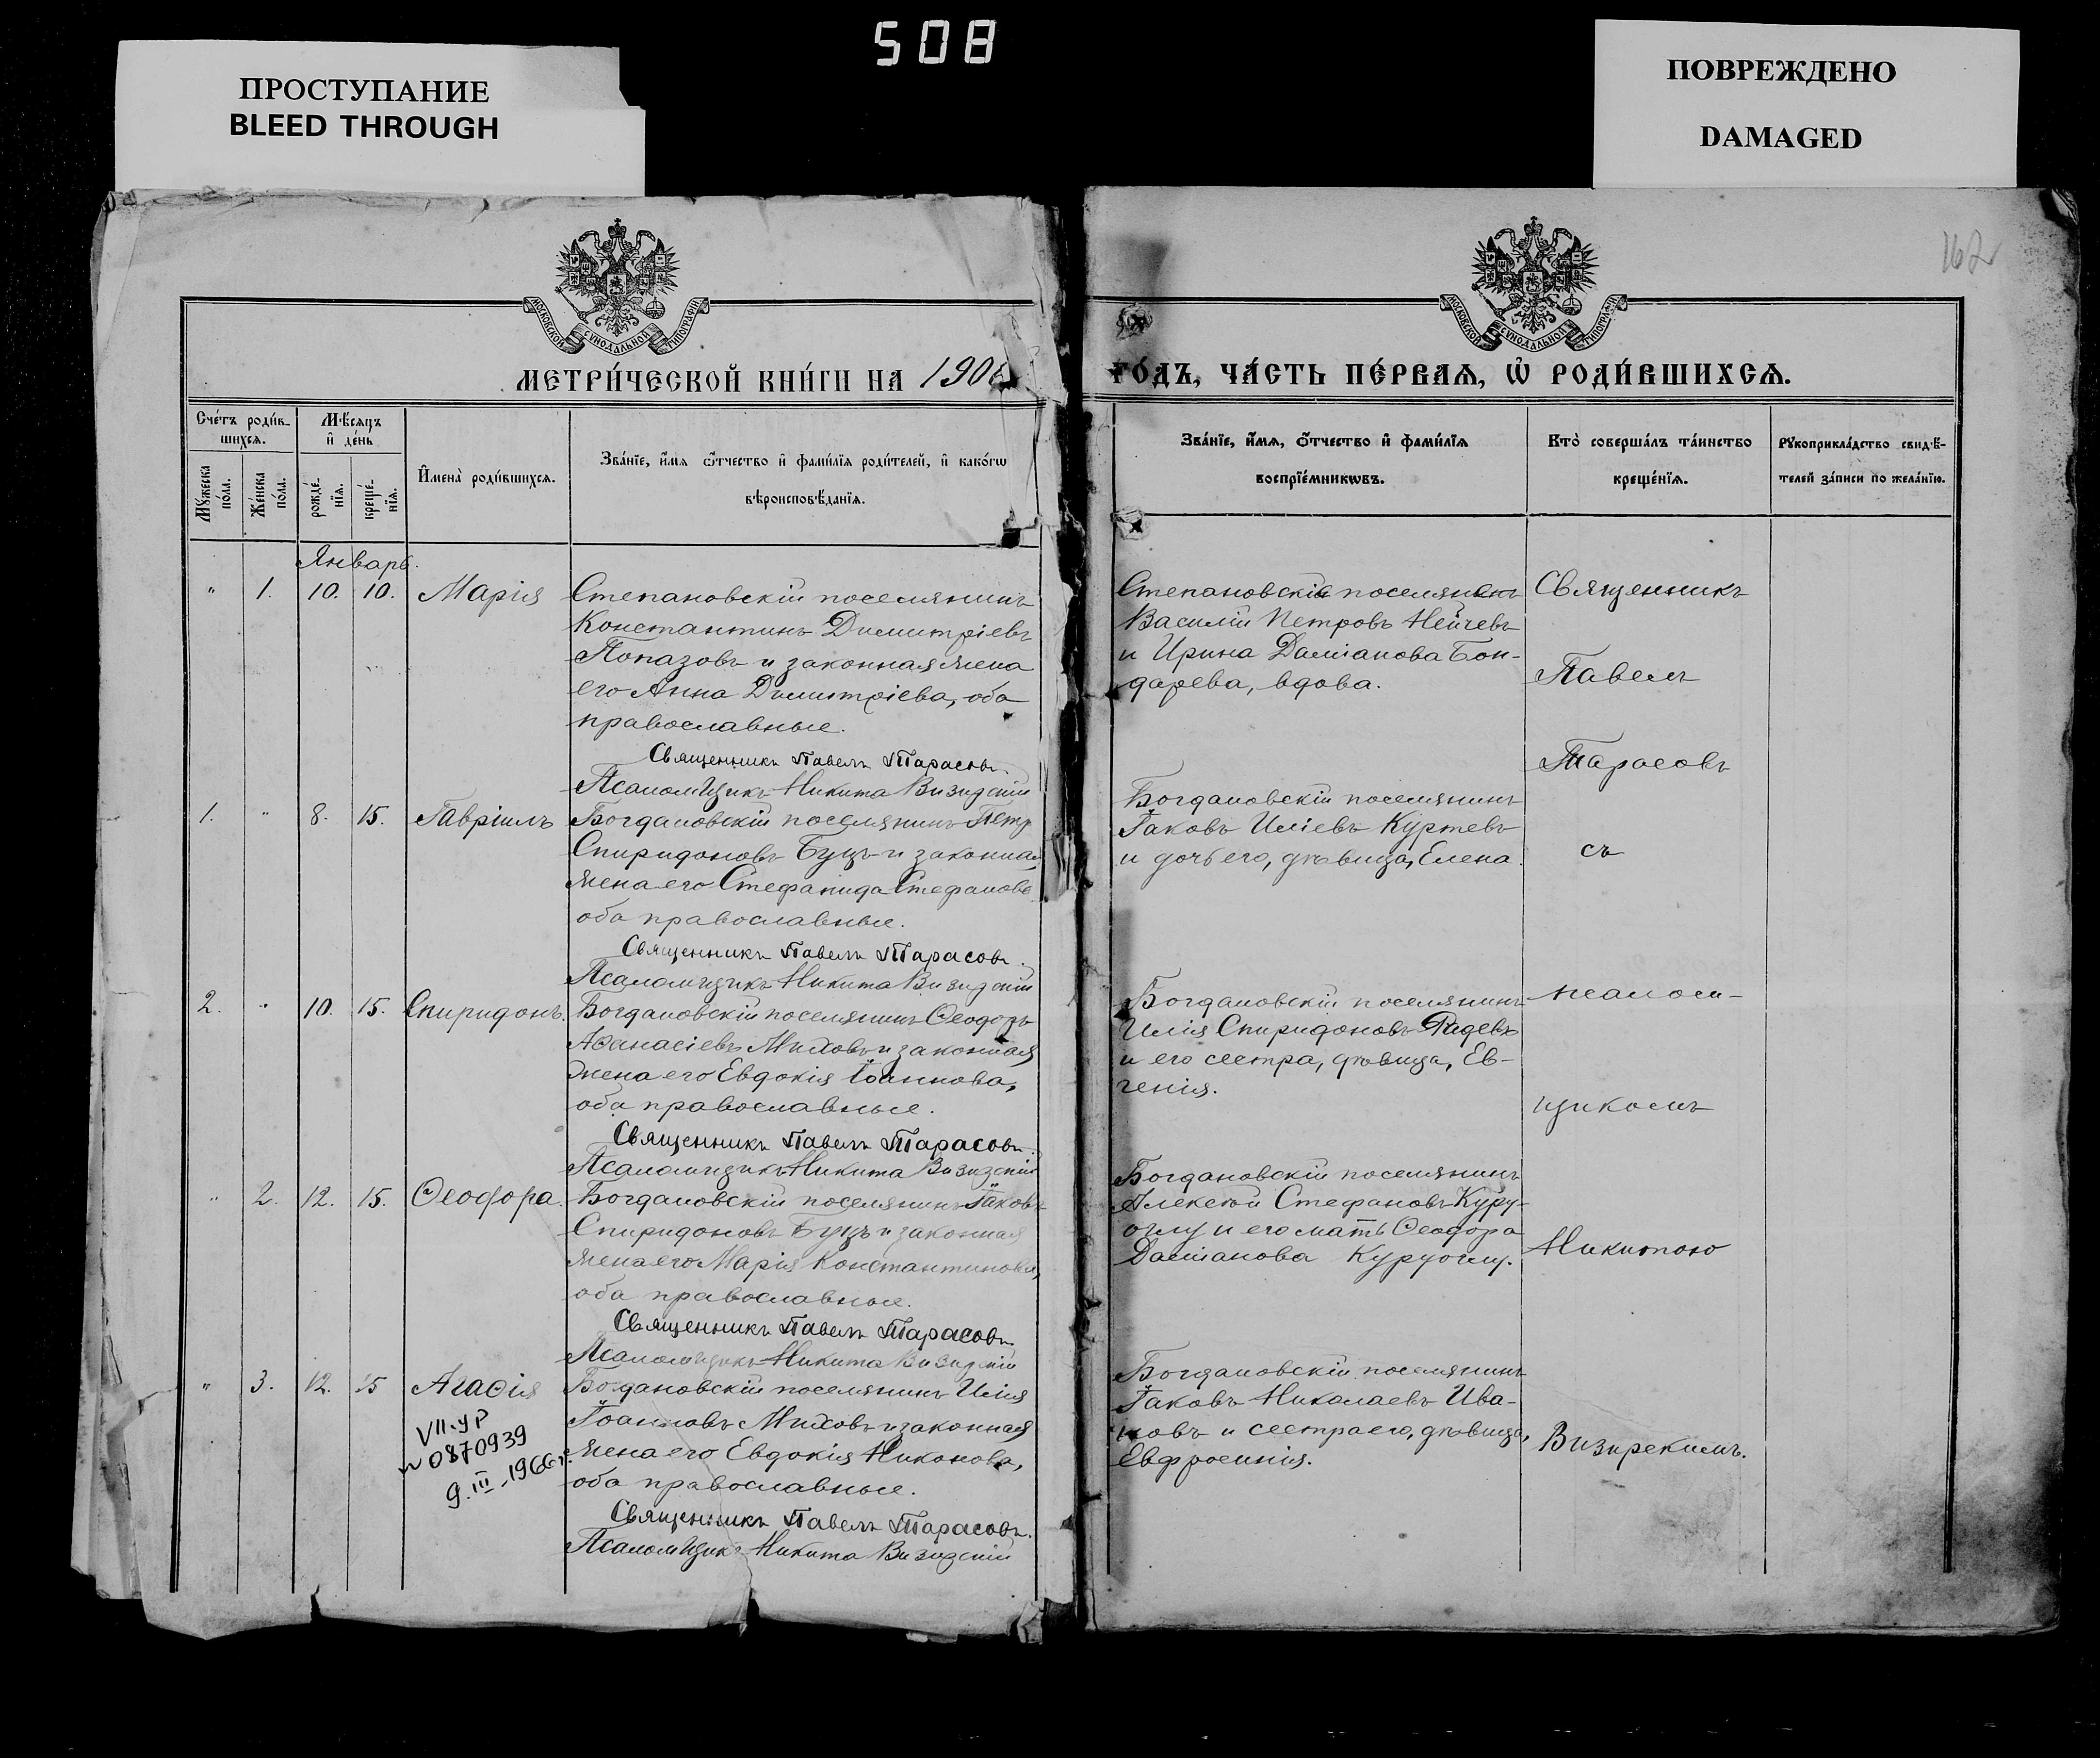 508
ПРОСТУПАНИЕ
BLEED THROUGH
ПОВРЕЖДЕНО
DAMAGED
162
МОСКОВСКОЙ СѴНОДАЛЬНОЙ ТИПОГРАФІИ
МОСКОВСКОЙ СѴНОДАЛЬНОЙ ТИПОГРАФІИ
МЕТРИ́ЧЕСКОЙ КНИ́ГИ НА 190
ГО́ДЪ, ЧА́СТЬ ПЕ́РВАѦ, Ѡ҆ РОДИ́ВШИХСѦ.
Сче́тъ роди́в-
шихсѧ.
Мѣ́сѧцъ
и҆ де́нь
Мꙋ́жеска
по́ла.
Же́нска
по́ла.
рожде́-
нїѧ.
креще́-
нїѧ.
И҆мена̀ роди́вшихсѧ.
Зва́нїе, и҆́мѧ ѻ҆́тчество и҆ фами́лїѧ роди́телей, и҆ како́гѡ
вѣроисповѣ́данїѧ.
Зва́нїе, и҆́мѧ, ѻ҆́тчество и҆ фами́лїѧ
воспрїе́мникѡвъ.
Кто̀ соверша́лъ та́инство
креще́нїѧ.
Рꙋкоприкла́дство свидѣ́-
телей за́писи по жела́нїю.
Январь.
" 1. 10. 10. Марія
Степановскій поселянинъ
Константинъ Димитріевъ
Попазовъ и законная жена
его Анна Димитріева, оба
православные.
Священникъ Павелъ Тарасовъ.
Псаломщикъ Никита Визирскій
Степановскіе поселяне
Василій Петровъ Нейчевъ
и Ирина Даміанова Бон-
дарева, вдова.
1. " 8. 15. Гавріилъ
Богдановскій поселянинъ Петр
Спиридоновъ Буцъ и законная
жена его Стефанида Стефанова
оба православные.
Священникъ Павелъ Тарасовъ.
Псаломщикъ Никита Визирскій
Богдановскій поселянинъ
Іаковъ Иліевъ Куртевъ
и дочь его, дѣвица, Елена.
2. " 10. 15. Спиридонъ.
Богдановскій поселянинъ Ѳеодоръ
Аѳанасіевъ Миховъ и законная
жена его Евдокія Іоаннова,
оба православные.
Священникъ Павелъ Тарасовъ.
Псаломщикъ Никита Визирскій
Богдановскій поселянинъ
Илія Спиридоновъ Радевъ
и его сестра, дѣвица, Ев-
генія.
" 2. 12. 15. Ѳеодора.
Богдановскій поселянинъ Іаковъ
Спиридоновъ Буцъ и законная
жена его Марія Константинова,
оба православные.
Священникъ Павелъ Тарасовъ.
Псаломщикъ Никита Визирскій
Богдановскій поселянинъ
Алексій Стефановъ Куру-
оглу и его мать Ѳеодора
Даміанова Куруоглу.
" 3. 12. 15 Агаѳія
Богдановскій поселянинъ Илія
Іоанновъ Миховъ и законная
жена его Евдокія Никонова,
оба православные.
Священникъ Павелъ Тарасовъ.
Псаломщикъ Никита Визирскій
Богдановскій поселянинъ
Іаковъ Николаевъ Ива-
новъ и сестра его, дѣвица,
Евфросинія.
VII-УР
№ 0870939
9.III-1966г.
Священникъ
Павелъ
Тарасовъ
съ
псалом-
щикомъ
Никитою
Визирскимъ.